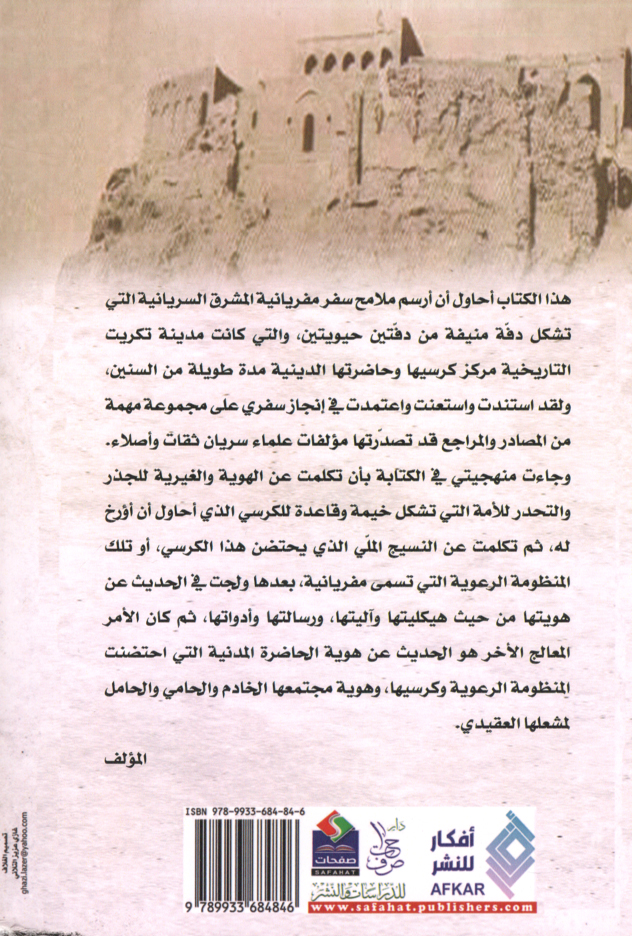 هذا الكتاب أحاول أن أرسم ملامح سفر مفريانية المشرق السريانية التي
تشكل دفّة منيفة من دفّتين حيويتين، والتي كانت مدينة تكريت
التاريخية مركز كرسيها وحاضرتها الدينية مدة طويلة من السنين،
ولقد استندت واستعنت واعتمدت في إنجاز سفري على مجموعة مهمة
من المصادر والمراجع قد تصدّرتها مؤلفات علماء سريان ثقات وأصلاء.
وجاءت منهجيتي في الكتابة بأن تكلمت عن الهوية والغيرية للجذر
والتحدر للأمة التي تشكل خيمة وقاعدة للكرسي الذي أحاول أن أؤرخ
له، ثم تكلمت عن النسيج الملّي الذي يحتضن هذا الكرسي، أو تلك
المنظومة الرعوية التي تسمى مفريانية، بعدها ولجت في الحديث عن
هويتها من حيث هيكليتها وآليتها، ورسالتها وأدواتها، ثم كان الأمر
المعالج الأخر هو الحديث عن هوية الحاضرة المدنية التي احتضنت
المنظومة الرعوية وكرسيها، وهوية مجتمعها الخادم والحامي والحامل
لمشعلها العقيدي.
المؤلف
ISBN 978-9933-684-84-6
9 789933 684846
صفحات
SAFAHAT
دار
للدراسات والنشر
www.safahat.publishers.com
أفكار
للنشر
AFKAR
تصميم الغلاف
ghazi.lazer@yahoo.com